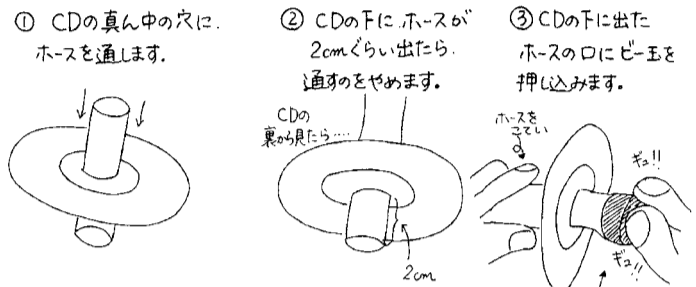 ① CDの真ん中の穴に
ホースを通します。
② CDの下に、ホースが
2cmぐらい出たら
通すのをやめます。
CDの
裏から見たら……
2cm
③ CDの下に出た
ホースの口にビー玉を
押し込みます。
ホースを
こてい
する
ギュ!!
ギュ!!